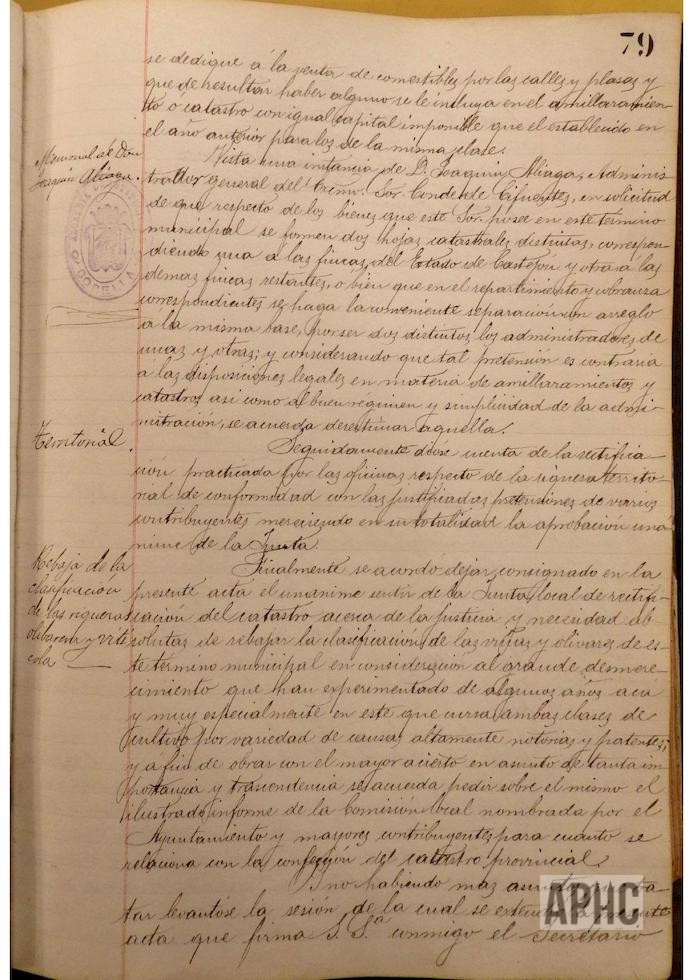 79
se dedique á la venta de comestibles por las calles y plasas y
que de resultar haber alguno se le incluya en el amillaramien-
to ó catastro con igual capital imponible que el establecido en
el año anterior para los de la misma clase.
Memorial de Don
Joaquin Aliaga.
Vista una instancia de D. Joaquin Aliaga, Adminis-
trador general del Excmo. Sor. Conde de Cifuentes, en solicitud
de que respecto de los bienes que este Sor. posee en este termino
municipal se formen dos hojas catastrales distintas, correspon-
diendo una a las fincas del Estado de Castejon y otra a las
demas fincas restantes, o bien que en el repartimiento y cobranza
correspondientes se haga la conveniente separacion con arreglo
á la misma base, por ser dos distintos los administradores de
unas y otras; y considerando que tal pretension es contraria
a las disposiciones legales en materia de amillaramientos y
catastros asi como al buen regimen y simplicidad de la admi-
nistración, se acuerda desestimar aquella.
Territorial.
Seguidamente dióse cuenta de la rectifica-
ción practicada por las oficinas respecto de la riquesa territo-
rial de conformidad con las justificadas pretensiones de varios
contribuyentes mereciendo en su totalidad la aprobación uná-
nime de la Junta.
Rebaja de la
clasificación
de las riquezas
olibarera y viti
cola
Finalmente se acordó dejar consignado en la
presente acta el unanime sentir de la Junta local de rectifi-
cación del catastro acerca de la justicia y necesidad ab-
solutas de rebajar la clasificación de las viñas y olivares de es-
te termino municipal en consideración al grande desmere-
cimiento que han experimentado de algunos años acá
y muy especialmente en este que cursa, ambas clases de
cultivo por variedad de causas altamente notorias y patentes;
y a fin de obrar con el mayor acierto en asunto de tanta im-
portancia y trascendencia se acuerda pedir sobre el mismo el
ilustrado informe de la Comisión local nombrada por el
Ayuntamiento y mayores contribuyentes para cuanto se
relaciona con la confección del catastro provincial.
I no habiendo mas asuntos
tar levantóse la sesión de la cual se
acta que firma S. Sª conmigo el Secretario
APHC